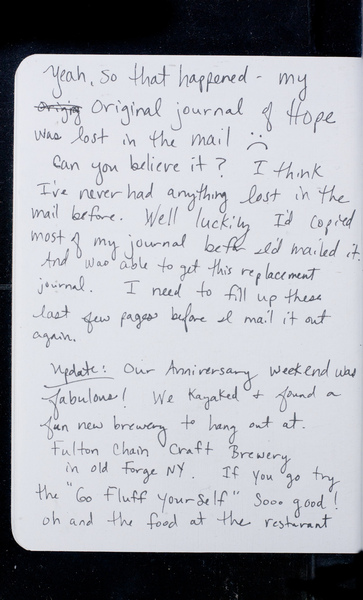 Yeah, So that happened - my
Original journal of Hope
was lost in the mail :(
Can you believe it? I think
I've never had anything lost in the
mail before. Well luckily I'd copied
most of my journal before I'd mailed it.
And was able to get this replacement
journal. I need to fill up these
last few pages before I mail it out
again.
Update: Our Anniversary weekend was
fabulous! We Kayaked + found a
fun new brewery to hang out at.
Fulton Chain Craft Brewery
in old Forge NY. If you go try
the "Go Fluff yourself" Sooo good!
oh and the food at the resturant